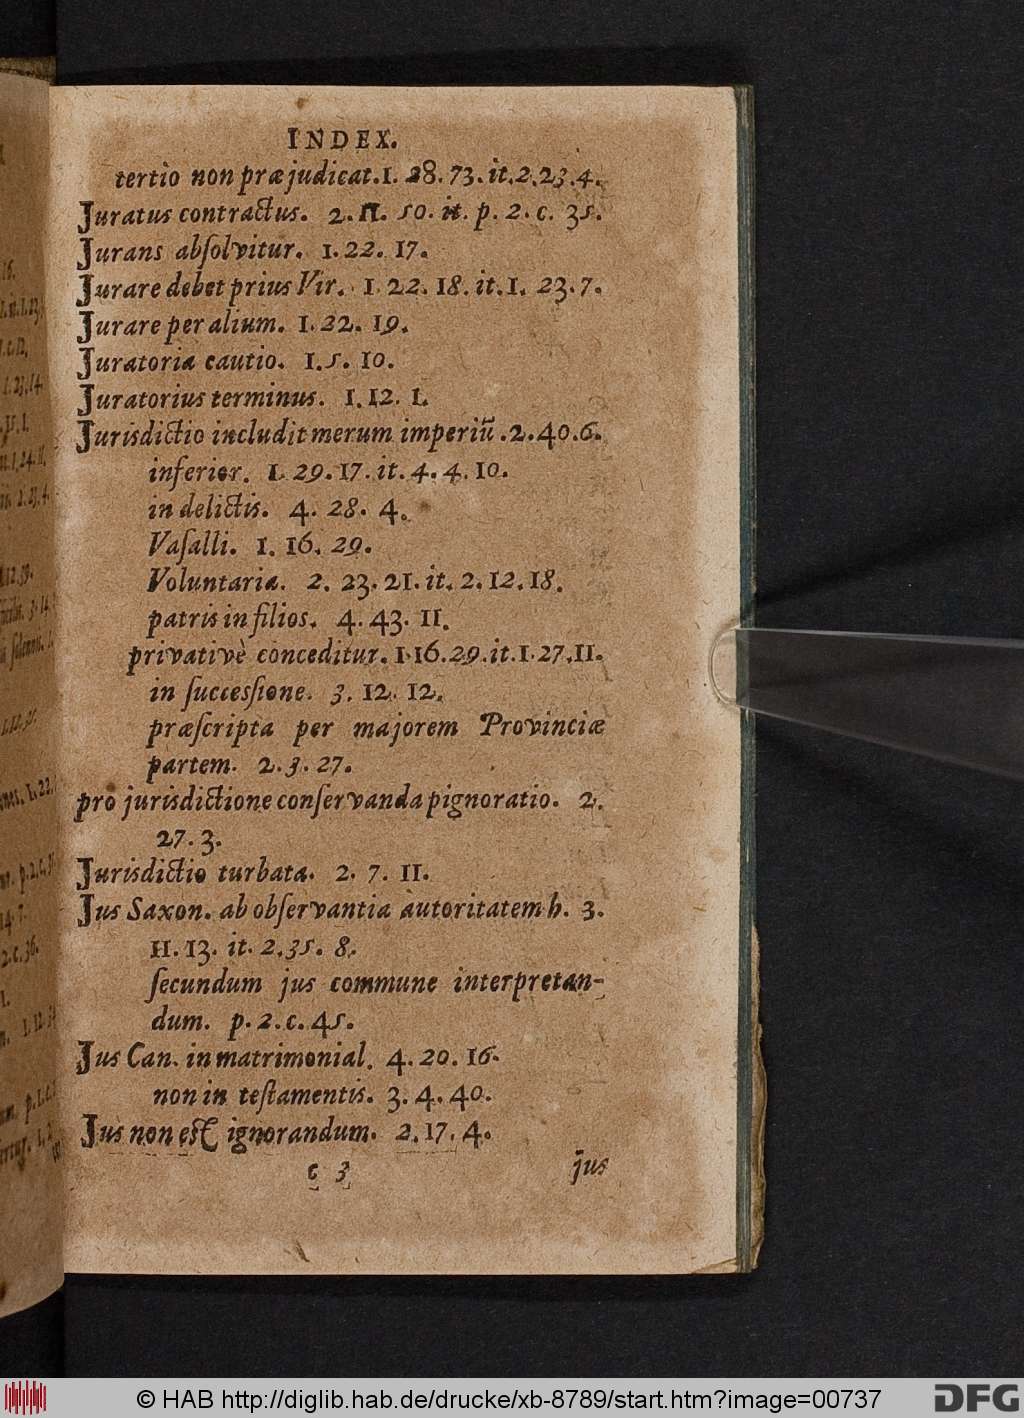 INDEX.
tertio non præjudicat. 1. 28. 73. it. 2. 23. 4.
Juratus contractus. 2. 11. 50. it. p. 2. c. 35.
Jurans abſolvitur. 1. 22. 17.
Jurare debet prius Vir. 1. 22. 18. it. 1. 23. 7.
Jurare per alium. 1. 22. 19.
Juratoria cautio. 1. 5. 10.
Juratorius terminus. 1. 12. 1.
Jurisdictio includit merum imperiū. 2. 40. 6.
inferior. 1. 29. 17. it. 4. 4. 10.
in delictis. 4. 28. 4.
Vaſalli. 1. 16. 29.
Voluntaria. 2. 23. 21. it. 2. 12. 18.
patris in filios. 4. 43. 11.
privativè conceditur. 1. 16. 29. it. 1. 27. 11.
in ſucceſsione. 3. 12. 12.
præſcripta per majorem Provinciæ
partem. 2. 3. 27.
pro jurisdictione conſervanda pignoratio. 2.
27. 3.
Jurisdictio turbata. 2. 7. 11.
Jus Saxon. ab obſervantia autoritatem h. 3.
11. 13. it. 2. 35. 8.
ſecundum jus commune interpretan-
dum. p. 2. c. 45.
Jus Can. in matrimonial. 4. 20. 16.
non in teſtamentis. 3. 4. 40.
Jus non eſt ignorandum. 2. 17. 4.
c 3 jus
© HAB http://diglib.hab.de/drucke/xb-8789/start.htm?image=00737
DFG